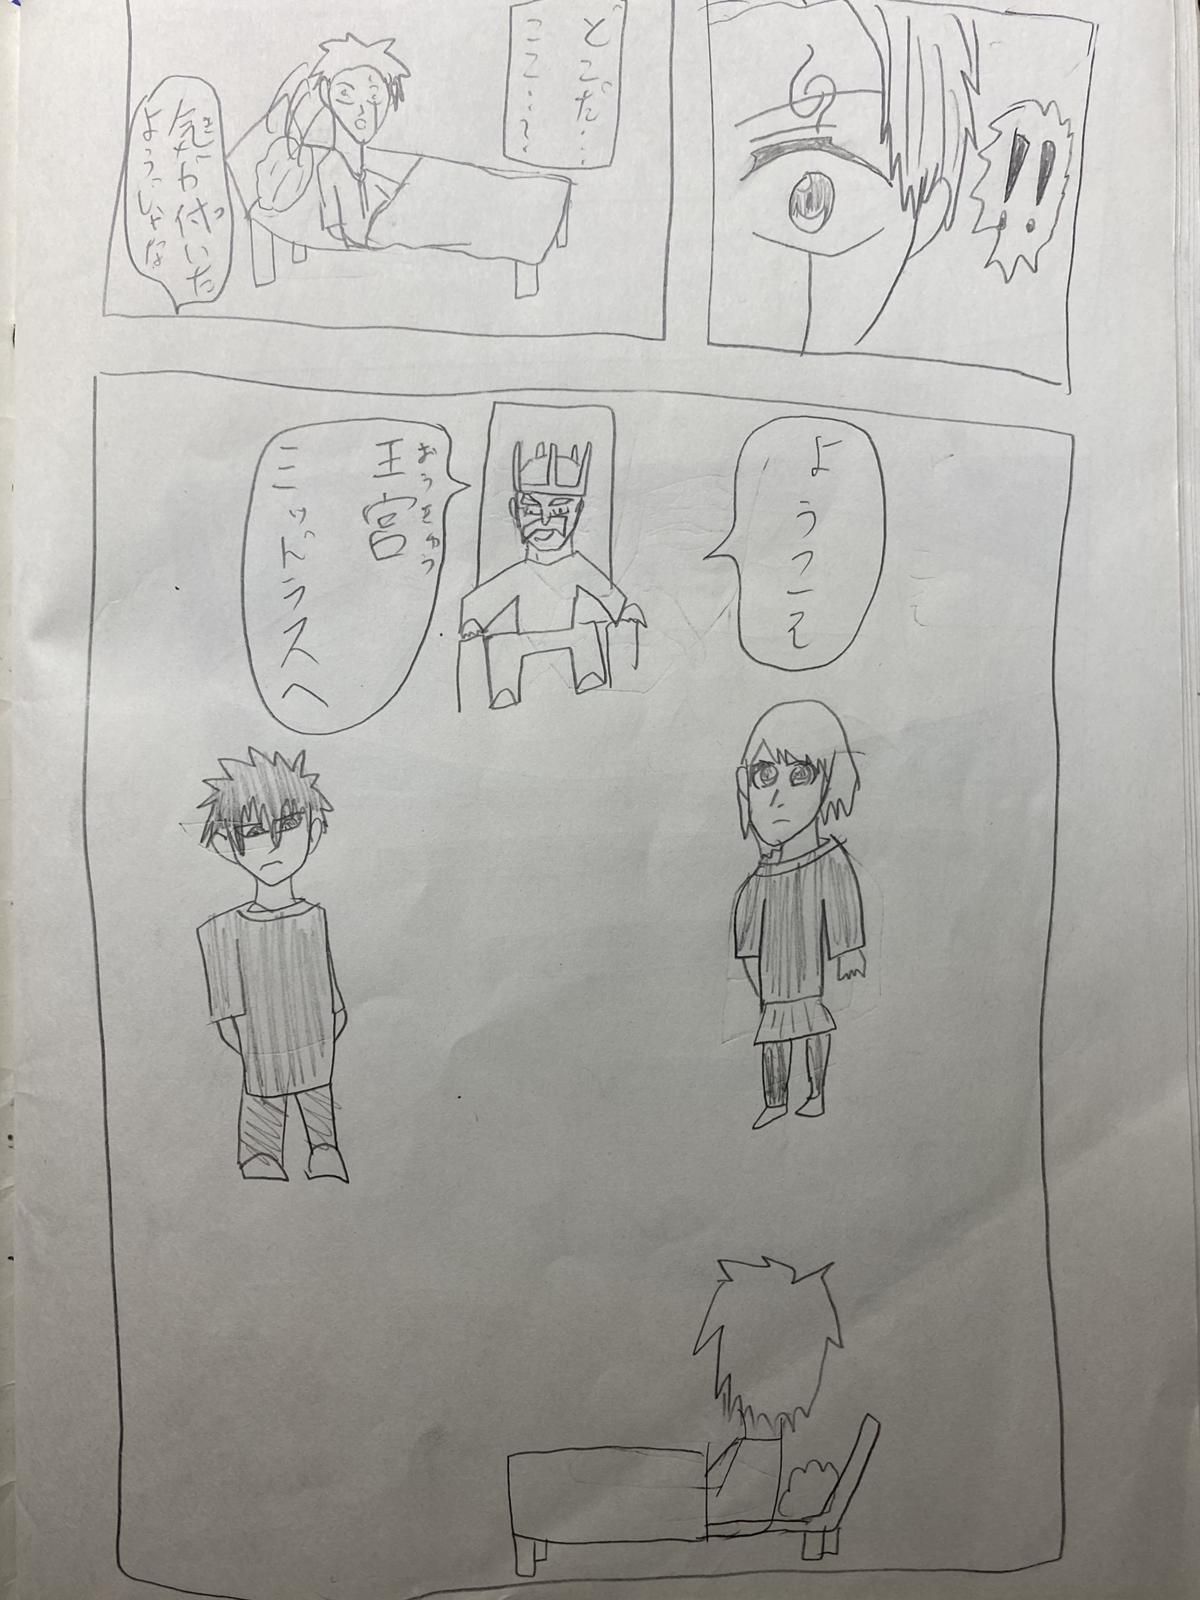 !!
どこだ…
ここ…?
気が付いた
ようじゃな
ようこそ
おうきゅう
王宮
ミッドラスへ